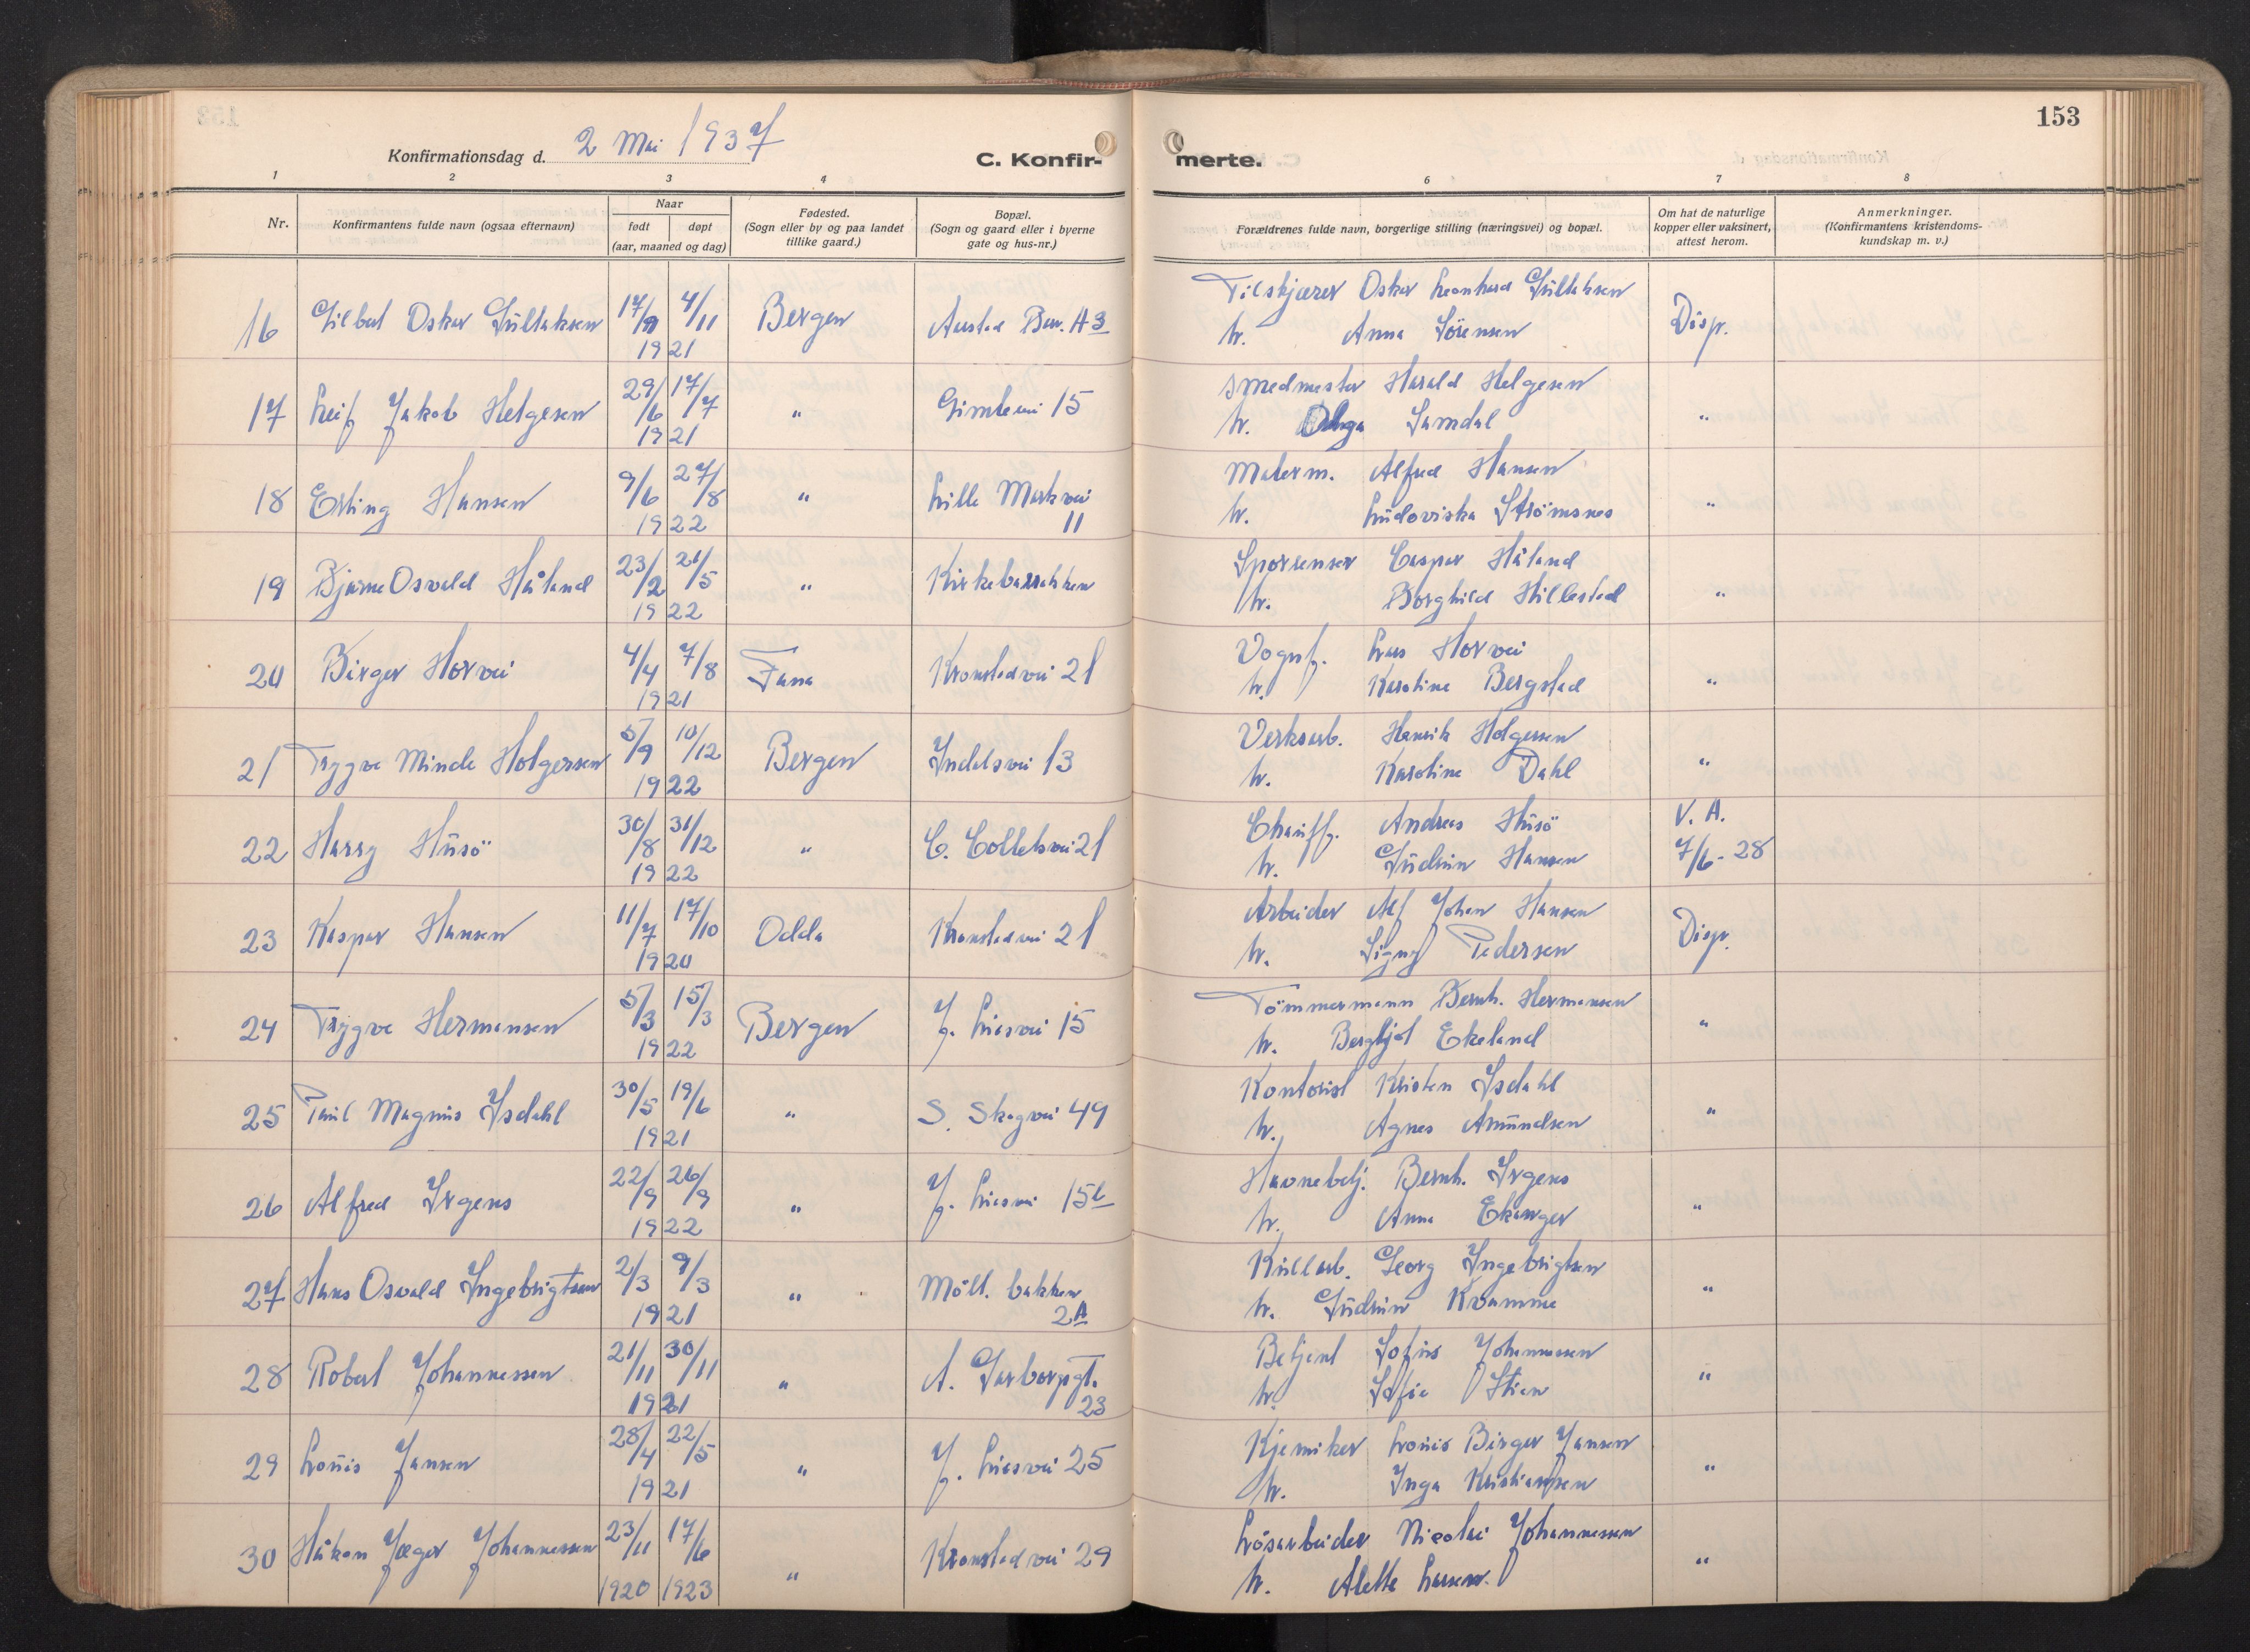 153
Konfirmationsdag d. 2 Mai 1937
C. Konfir-
merte.
1 2 3 4 6 7 8
Nr.
Konfirmantens fulde navn (ogsaa efternavn)
Naar
født døpt
(aar, maaned og dag)
Fødested.
(Sogn eller by og paa landet
tillike gaard.)
Bopæl.
(Sogn og gaard eller i byerne
gate og hus-nr.)
Forældrenes fulde navn, borgerlige stilling (næringsvei) og bopæl.
Om hat de naturlige
kopper eller vaksinert,
attest herom.
Anmerkninger.
(Konfirmantens kristendoms-
kundskap m. v.)
Tilskjærer Oskar Leonhard Gullaksen
16 Gilbert Oskar Gullaksen 17/9 4/11 Bergen Aarstad Bar. A 3 Disp.
h. Anna Sörensen
1921
Smedmester Harald Helgesen
17 Leif Jakob Helgesen 29/6 17/7 " Gimlevei 15 "
h. Olga Samdal
1921
Malerm. Alfred Hansen
18 Erling Hansen 9/6 27/8 " Lille Markvei "
h. Ludoviska Strömsnes
1922 11
Sporrenser Caspar Håland
19 Bjarne Osvald Håland 23/2 21/5 " Kirkebarakken "
h. Borghild Hillestad
1922
Vognf. Lars Horvei
20 Birger Horvei 4/4 7/8 Fana Kronstadvei 21 "
h. Karoline Bergstad
1921
Verksarb. Henrik Holgersen
21 Trygve Minde Holgersen 5/9 10/12 Bergen Indalsvei 13 "
h. Karoline Dahl
1922
Chauff. Andreas Husö V. A.
22 Harry Husö 30/8 31/12 " C. Colletsvei 21 7/6-28
h. Gudrun Hansen
1922
Arbeider Alf Johan Hansen
23 Kaspar Hansen 11/7 17/10 Odda Kronstadvei 21 Disp.
h. Signy Pedersen
1920
Tömmermann Bernh. Hermansen
24 Trygve Hermansen 5/3 15/3 Bergen J. Liesvei 15 "
h. Bergljot Ekeland
1922
Kontorist Kristen Isdahl
25 Paul Magnus Isdahl 30/5 19/6 " S. Skogvei 49 "
h. Agnes Amundsen
1921
Havnebetj. Bernh. Irgens
26 Alfred Irgens 22/9 26/9 " J. Liesvei 15b "
h. Anna Ekanger
1922
Kullarb. Georg Ingebrigtsen
27 Hans Osvald Ingebrigtsen 2/3 9/3 " Möll. bakken "
h. Gudrun Kvamme
1921 2A
Betjent Sofus Johannesen
28 Robert Johannessen 21/11 30/11 " A. Garborgsgt. "
h. Sofie Stien
1921 23
Kjemiker Louis Birger Jansen
29 Louis Jansen 28/4 22/5 " J. Liesvei 25 "
h. Inga Kristiansen
1921
Lösarbeider Nicolai Johannessen
30 Håkon Jæger Johannessen 23/11 17/6 " Kronstadvei 29 "
h. Alette Larsen.
1920 1923